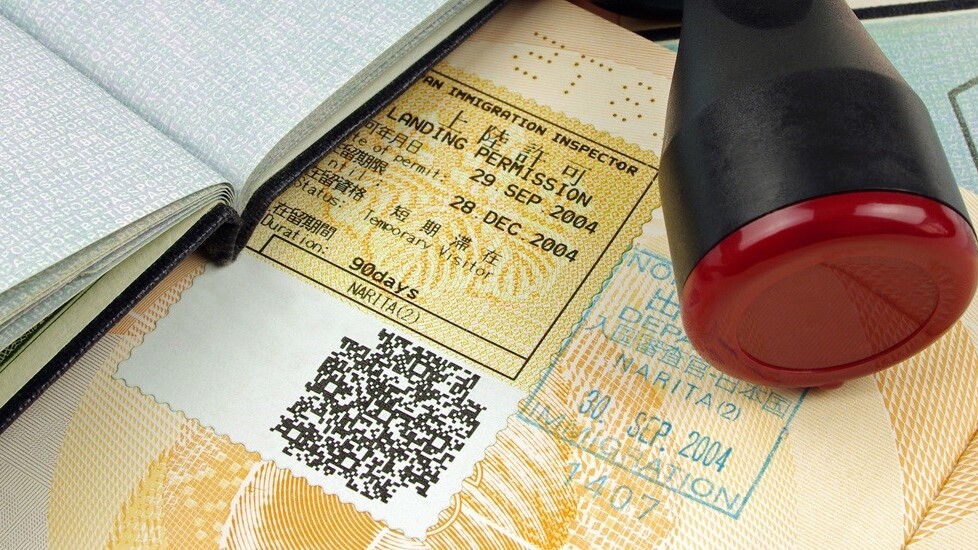 AN IMMIGRATION INSPECTOR
上陸許可
LANDING PERMISSION
可年月日
Date of permit: 29 SEP.2004
在留期限
28.DEC.2004
在留資格 短期滞在
Status: Temporary Visitor
在留期間
Duration: 90days
NARITA(2)
DEPA
入国審査官日本国
NARITA(2)
30. SEP. 2004
IMMIGRATION
1407